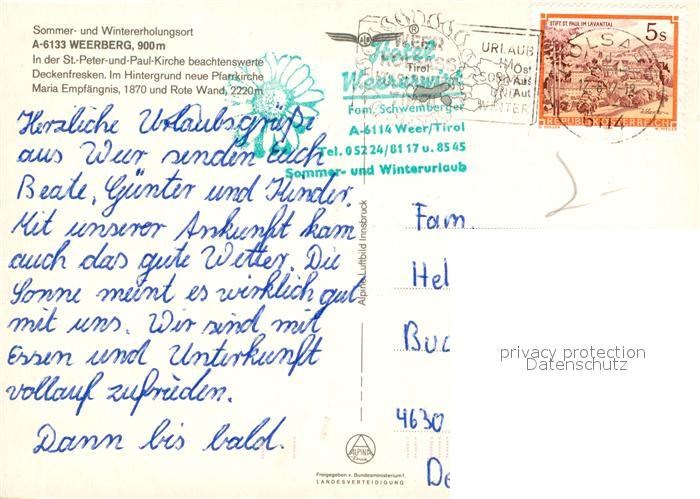 Sommer- und Wintererholungsort
A-6133 WEERBERG, 900 m
In der St.-Peter-und-Paul-Kirche beachtenswerte
Deckenfresken. Im Hintergrund neue Pfarrkirche
Maria Empfängnis, 1870 und Rote Wand, 2220 m
Herzliche Urlaubsgrüße
aus Weer senden Euch
Beate, Günter und Kinder.
Mit unserer Ankunft kam
auch das gute Wetter. Die
Sonne meint es wirklich gut
mit uns. Wir sind mit
Essen und Unterkunft
vollauf zufrieden.
Dann bis bald.
Hotel
Tirol
Weererwirt
Fam. Schwemberger
A-6114 Weer/Tirol
Tel. 05224/8117 u. 8545
Sommer- und Winterurlaub
URLAUB
IM
SOMMER
UND
WINTER
STIFT ST. PAUL IM LAVANTTAL
5s
REPUBLIK ÖSTERREICH
Alpine Luftbild Innsbruck
Fam.
Hel
Buc
4630
De
privacy protection
Datenschutz
ALPINA
Freigegeben v. Bundesministerium f.
LANDESVERTEIDIGUNG